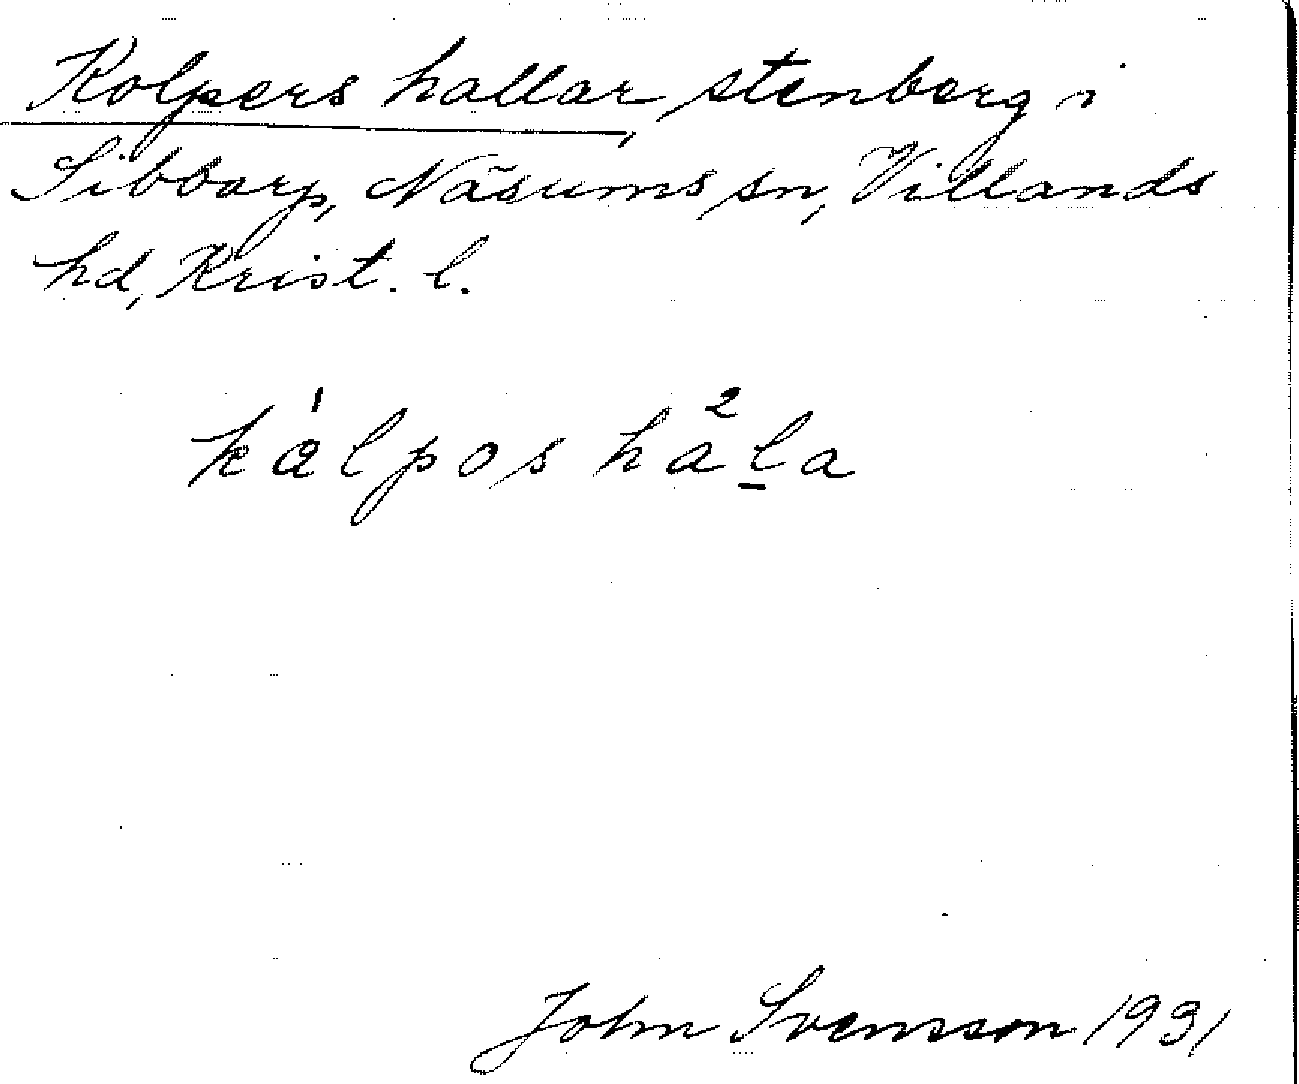 Kolpers hallar, stenberg i
Sibbarp, Näsums sn, Villands
hd, Krist. l.
kå¹lpos ha²l̲a
John Svensson 1931